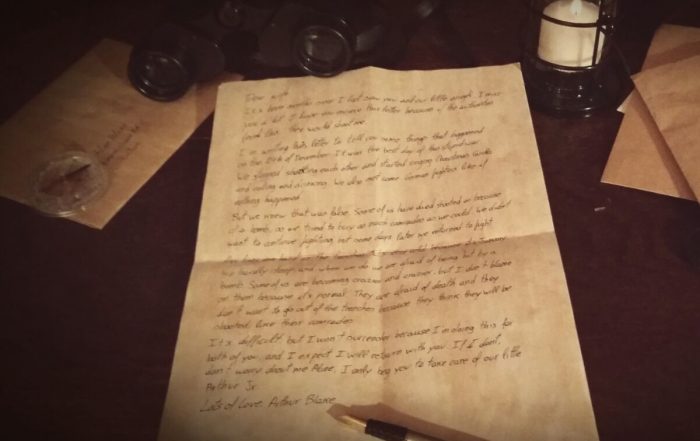 Dear wife
It's been months since I last saw you and our little angel. I miss
you a lot. I hope you receive this letter because if the authorities
read this, they would shoot me.
I'm writing this letter to tell you some things that happened
on the 24th of December. It was the best day of the
We stopped shooting each other and started singing Christmas carols
and eating and dancing. We also met some German fighters like if
nothing happened.
But we knew that was false. Some of us have died shooted or because
of a bomb, so we tried to bury as much comrades as we could. We didn't
want to continue fighting but some days later we returned to fight.
the trenches very cold because it's January
We hardly sleep and when we do we are afraid of being hit by a
bomb. Some of us are becoming crazier and crazier, but I don't blame
on them because it's normal. They are afraid of death and they
don't want to go out of the trenches because they think they will be
shooted like their comrades.
It's difficult, but I won't surrender because I'm doing this for
both of you, and I expect I will return with you. If I don't,
don't worry about me Alice. I only beg you to take care of our little
Arthur Jr.
Lots of love, Arthur